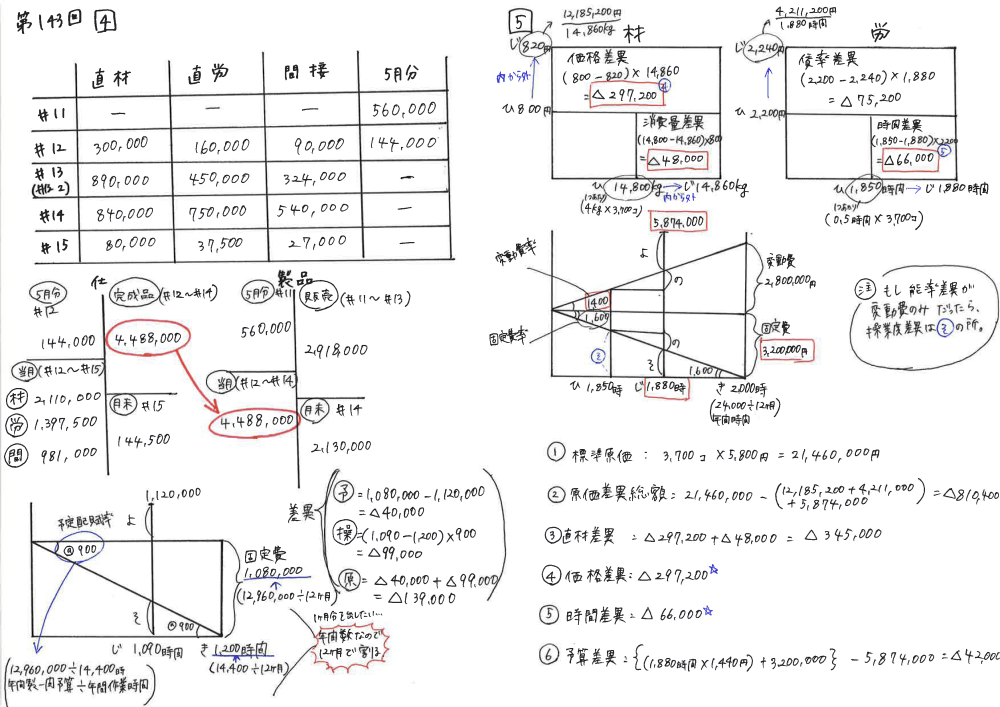 第143回 4
直材 直労 間接 5月分
#11 — — — 560,000
#12 300,000 160,000 90,000 144,000
#13 890,000 450,000 324,000 —
#14 840,000 750,000 540,000 —
#15 80,000 37,500 27,000 —
仕
5月分 完成品 (#12〜#14)
#12
144,000 4,488,000
当月 (#12〜#15)
材 2,110,000 月末 #15
労 1,397,500 144,500
間 981,000
製品
5月分 #11 販売 (#11〜#13)
560,000
2,918,000
当月 (#12〜#14)
4,488,000 月末 #14
2,130,000
1,120,000
よ
予定配賦率
@900
固定費
1,080,000
(12,960,000÷12ヶ月)
そ
@900
じ 1,090時間 き 1,200時間
(14,400÷12ヶ月)
(12,960,000÷14,400時
年間製一間予算÷年間作業時間)
差異
予=1,080,000−1,120,000
=△40,000
操=(1,090−1,200)×900
=△99,000
原=△40,000+△99,000
=△139,000
1ヶ月分を出したい…
年間数なので
12ヶ月で割る
5
12,185,200円
14,860kg
材
じ820円
価格差異
(800−820)×14,860
=△297,200
④
内から外
ひ800円
消費量差異
(14,800−14,860)×800
=△48,000
ひ 14,800kg→じ14,860kg
内から外
(4kg×3,700コ)
4,211,200円
1,880時間
労
じ2,240円
賃率差異
(2,200−2,240)×1,880
=△75,200
ひ2,200円
時間差異
(1,850−1,880)×2200
⑤
=△66,000
ひ 1,850時間→じ1,880時間
(0.5時間×3,700コ)
5,874,000
変動費率
よ
の
変動費
2,800,000円
1400
1,600
固定費率
の
固定費
3,200,000円
そ
1,600
ひ 1,850時 じ 1,880時 き 2,000時
(24,000÷12ヶ月)
年間時間
注 もし能率差異が
変動費のみだったら、
操業度差異は の所。
① 標準原価: 3,700コ×5,800円=21,460,000円
② 原価差異総額: 21,460,000−(12,185,200+4,211,000
+5,874,000)=△810,400
③ 直材差異 =△297,200+△48,000=△345,000
④ 価格差異:△297,200☆
⑤ 時間差異: △66,000☆
⑥ 予算差異:{(1,880時間×1,440円)+3,200,000}−5,874,000=△42,000